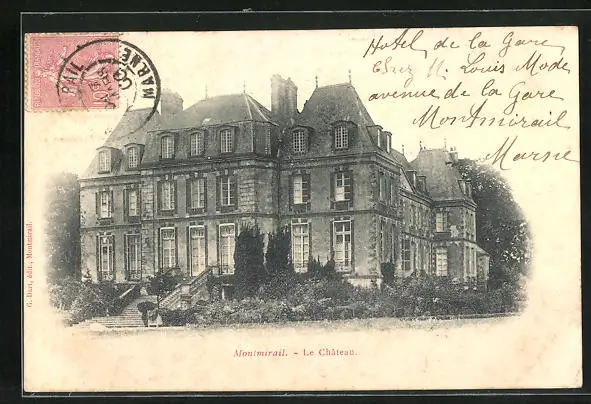 Hotel de la Gare
Chez M. Louis Mode
avenue de la Gare
Montmirail
Marne
MIRAIL
MARNE
10
G. Dart, édit., Montmirail.
Montmirail. - Le Château.